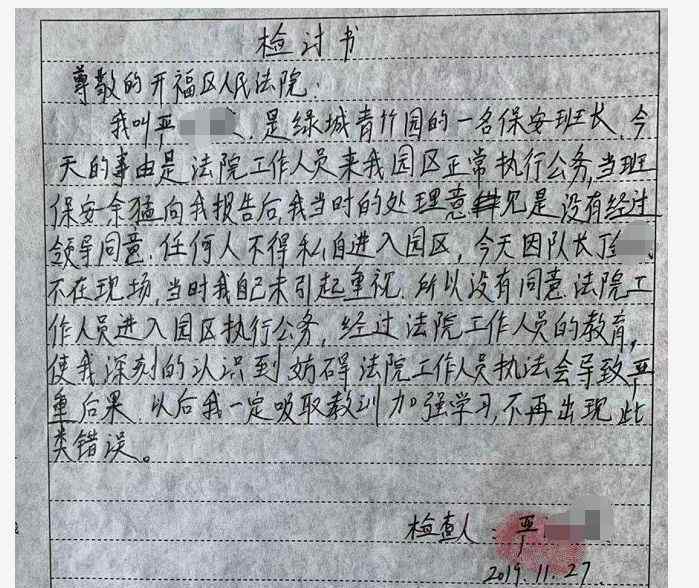 检讨书
尊敬的开福区人民法院.
我叫严 , 是绿城青竹园的一名保安班长, 今
天的事由是法院工作人员来我园区正常执行公务, 当班
保安余猛向我报告后, 我当时的处理意见是没有经过
领导同意, 任何人不得私自进入园区, 今天因队长
不在现场, 当时我自己未引起重视, 所以没有同意法院工
作人员进入园区执行公务, 经过法院工作人员的教育,
使我深刻的认识到妨碍法院工作人员执法会导致严
重后果 以后我一定吸取教训 加强学习, 不再出现此
类错误。
检查人: 严
2019.11.27